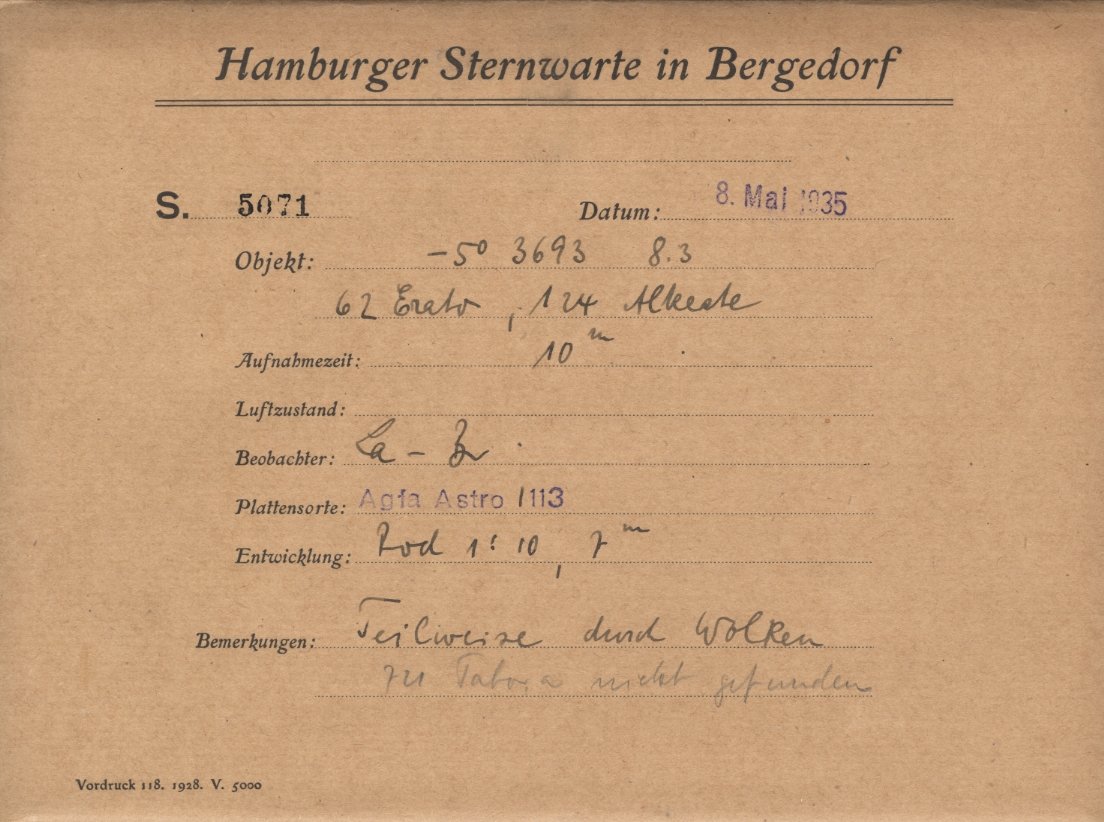 Hamburger Sternwarte in Bergedorf
S. 5071 Datum: 8. Mai 1935
Objekt: -5° 3693 8.3
62 Erato, 124 Alkeste
Aufnahmezeit: 10 m
Luftzustand:
Beobachter: La - Br
Plattensorte: Agfa Astro 1113
Entwicklung: Rod 1:10, 7 m
Bemerkungen: Teilweise durch Wolken
721 Tabora nicht gefunden
Vordruck 118. 1928. V. 5000